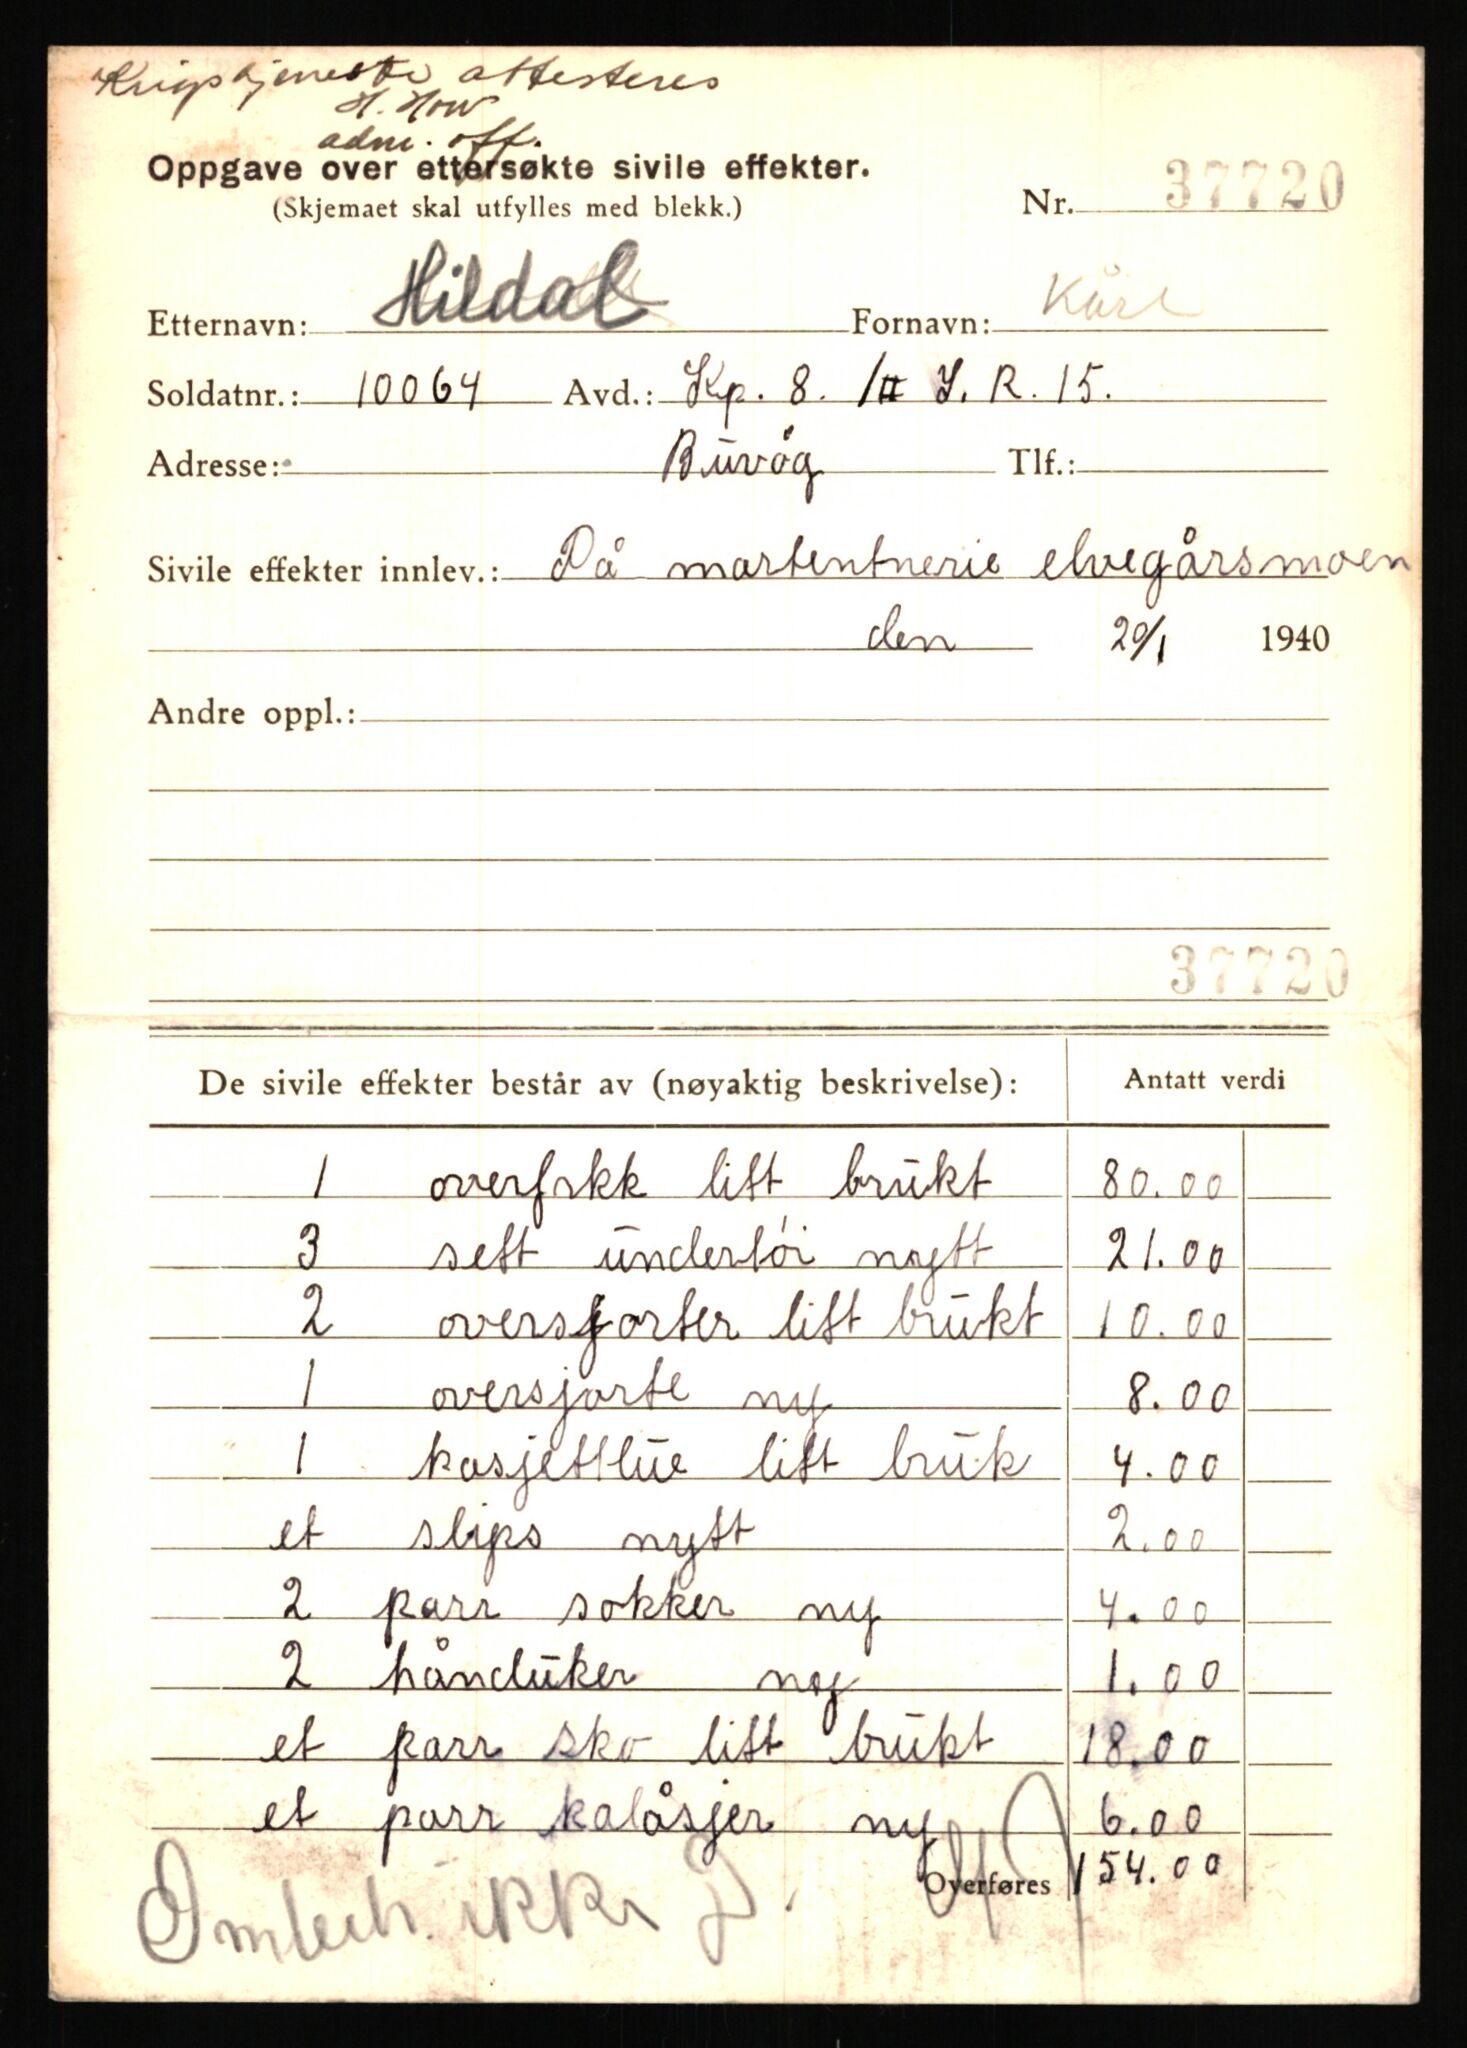 Krigstjeneste attesteres
H. How
adm. off.
Oppgave over ettersøkte sivile effekter.
(Skjemaet skal utfylles med blekk.)
Nr. 37720
Etternavn: Hildal Fornavn: Kåre
Soldatnr.: 10064 Avd.: Kp. 8. I. R. 15.
Adresse: Buvåg Tlf.:
Sivile effekter innlev.: På martentnerie elvegårsmoen
den 20/1 1940
Andre oppl.:
37720
De sivile effekter består av (nøyaktig beskrivelse): Antatt verdi
1 overfrkk litt brukt 80.00
3 sett undertøi nytt 21.00
2 oversjorter litt brukt 10.00
1 oversjorte ny 8.00
1 kasjettlue litt bruk 4.00
et slips nytt 2.00
2 parr sokker ny 4.00
2 hånduker ny 1.00
et parr sko litt brukt 18.00
et parr kalåsjer ny 6.00
Overføres 154.00
ikke